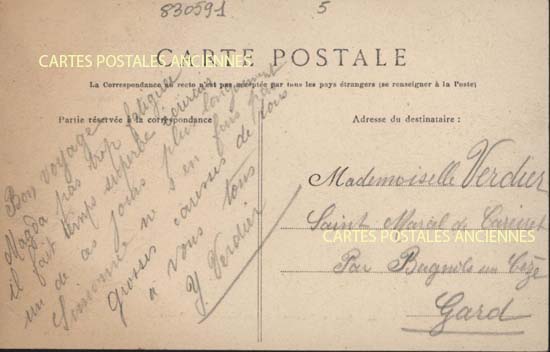 830591
5
CARTES POSTALES ANCIENNES
CARTE POSTALE
La Correspondance au recto n'est pas acceptée par tous les pays étrangers (se renseigner à la Poste)
Partie réservée à la correspondance
Bon voyage
Magda pas trop fatiguée
il fait temps superbe
un de ces jours plus longuement
Simone n s'en fins pas
grosses caresses de tous
a vous tous
Y Verdier
Adresse du destinataire :
Mademoiselle Verdier
Saint Marcel de Careiret
CARTES POSTALES ANCIENNES
Par Bagnols sur Cèze
Gard